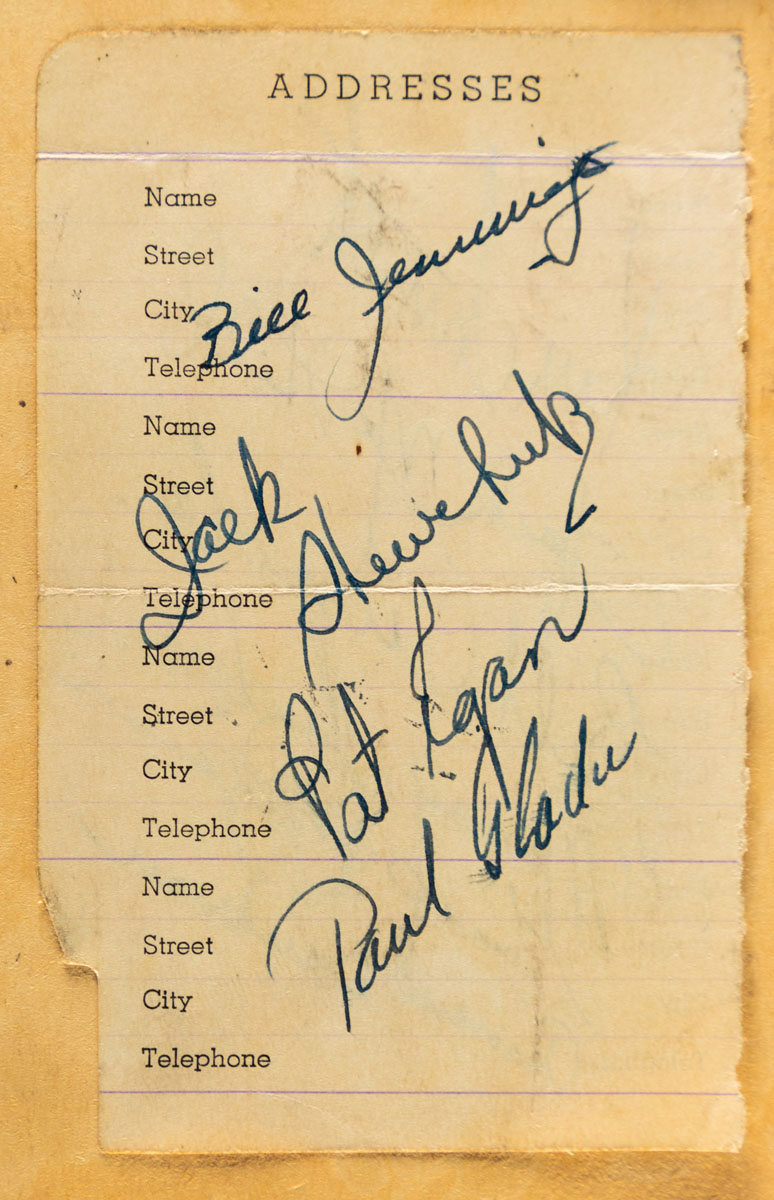 ADDRESSES
Name
Street
City
Telephone
Bill Jennings
Name
Street
City
Telephone
Jack Shewchuk
Name
Street
City
Telephone
Pat Egan
Name
Street
City
Telephone
Paul Gladu